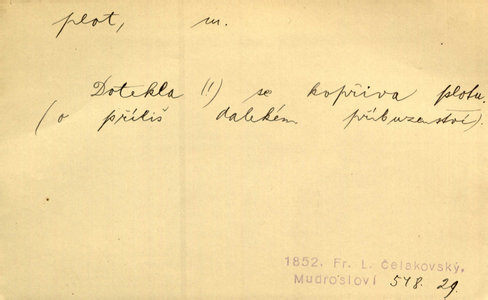 plot, m.
Dotekla (!) se kopřiva plotu.
(o příliš dalekém příbuzenství).
1852. Fr. L. Čelakovský,
Mudrosloví 548. 29.